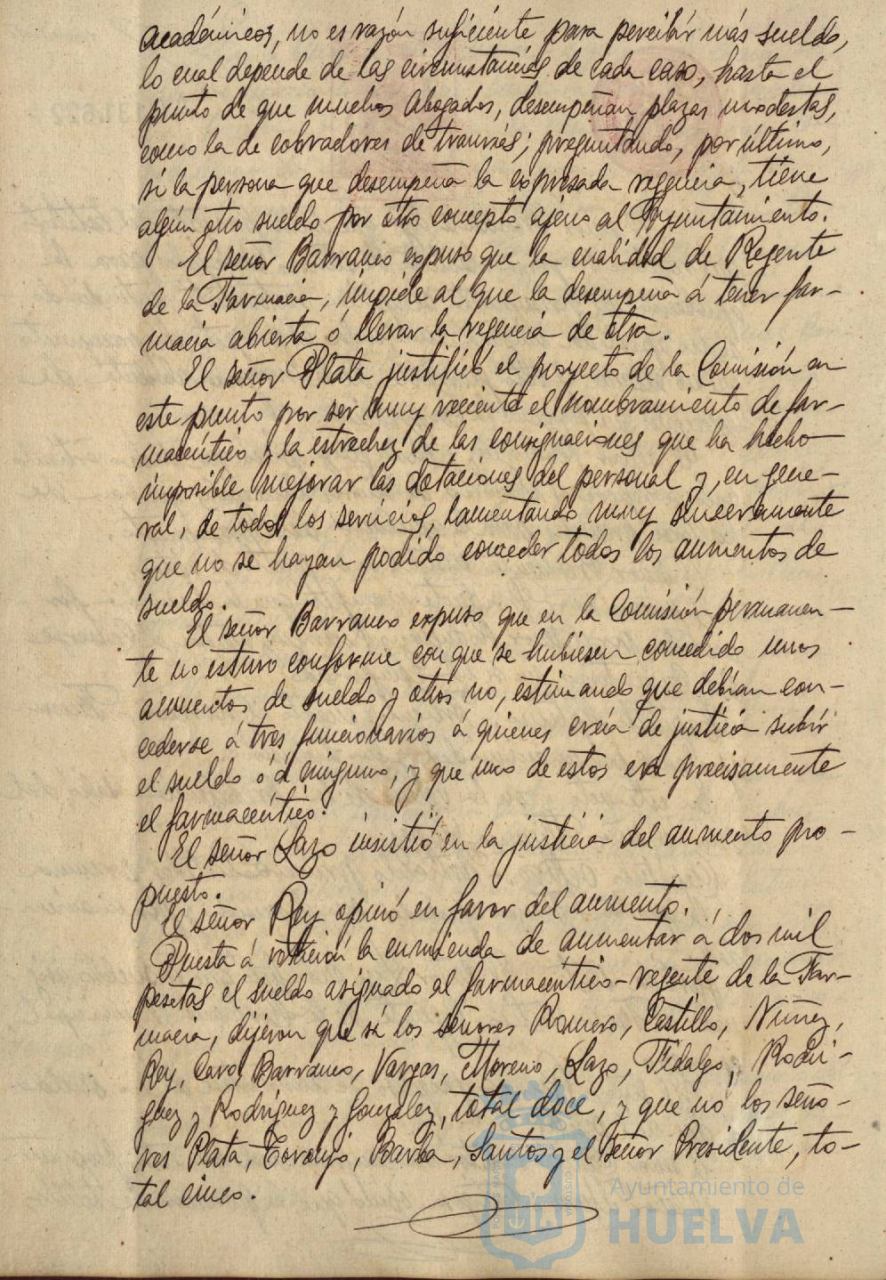 académicos, no es razón suficiente para percibir más sueldo,
lo cual depende de las circunstancias de cada caso, hasta el
punto de que muchos Abogados, desempeñan plazas modestas,
como la de cobradores de tranvías; preguntando, por último,
si la persona que desempeña la expresada regencia, tiene
algún otro sueldo por otro concepto ajeno al Ayuntamiento.
El señor Barranco expuso que la cualidad de Regente
de la Farmacia, impide al que la desempeña á tener far-
macia abierta ó llevar la regencia de otra.
El señor Plata justificó el proyecto de la Comisión en
este punto por ser muy reciente el nombramiento de far-
macéutico y la estrechez de las consignaciones que ha hecho
imposible mejorar las dotaciones del personal y, en gene-
ral, de todos los servicios, lamentando muy sinceramente
que no se hayan podido conceder todos los aumentos de
sueldo.
El señor Barranco expuso que en la Comisión permanen-
te no estuvo conforme con que se hubiesen concedido unos
aumentos de sueldo y otros no, estimando que debían con-
cederse á tres funcionarios á quienes creía de justicia subir
el sueldo ó á ninguno, y que uno de estos era precisamente
el farmacéutico.
El señor Lazo insistió en la justicia del aumento pro-
puesto.
El señor Rey opinó en favor del aumento.
Puesta á votación la enmienda de aumentar á dos mil
pesetas el sueldo asignado al farmacéutico-regente de la Far-
macia, dijeron que sí los señores Romero, Castillo, Núñez,
Rey, Caro, Barranco, Vargas, Moreno, Lazo, Fidalgo, Rodrí-
guez y Rodríguez y González, total doce, y que nó los seño-
res Plata, Toronjo, Barba, Santos y el señor Presidente, to-
tal cinco.
Ayuntamiento de
HUELVA